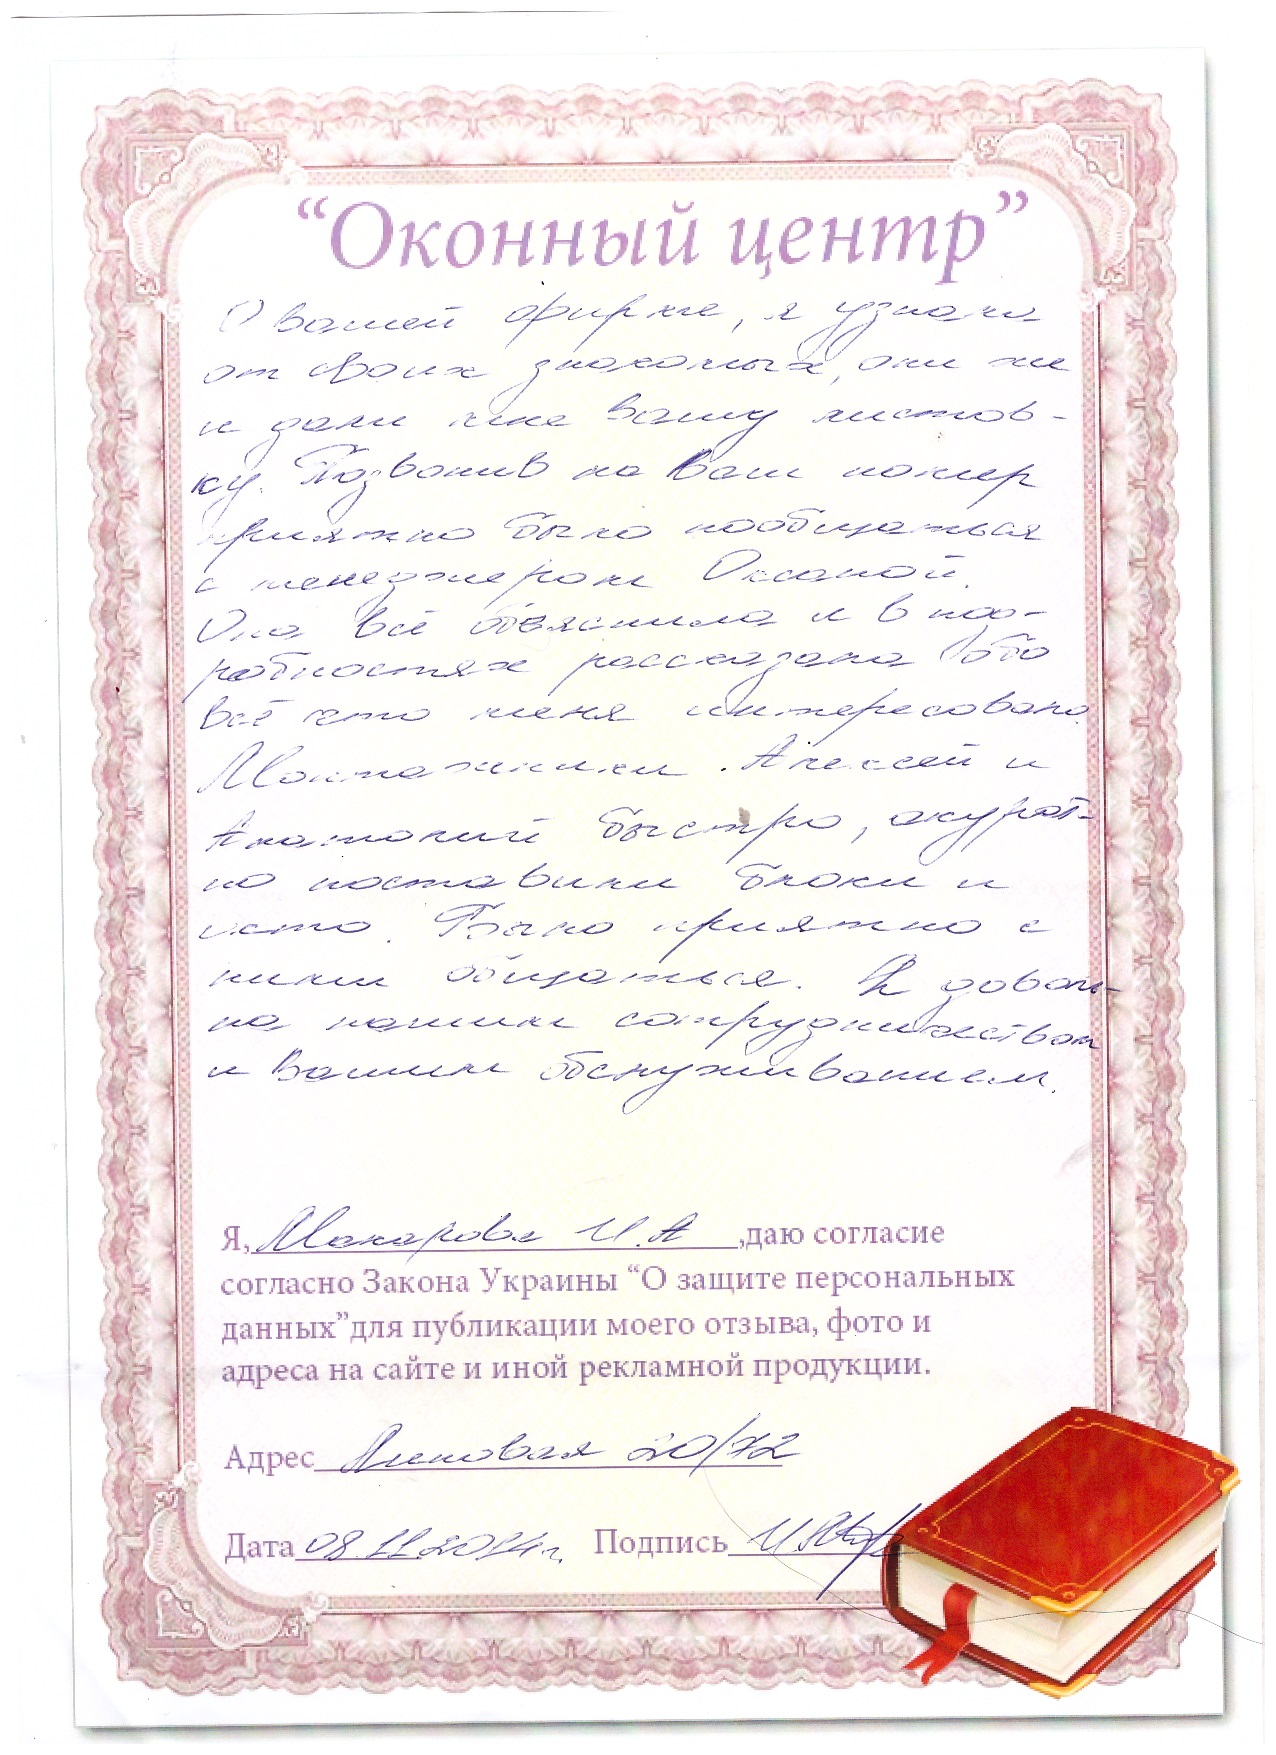 “Оконный центр”
О вашей фирме, я узнала
от своих знакомых, они же
и дали мне Вашу листов-
ку. Позвонив на Ваш номер
приятно было пообщаться
с менеджером Оксаной.
Она всё объяснила и в под-
робностях рассказала обо
всё что меня интересовало.
Монтажники. Алексей и
Анатолий быстро, акурат-
но поставили блоки и
чисто. Было приятно с
ними общаться. Я доволь-
на нашим сотрудничеством
и Вашим обслуживанием.
Я, Макарова И.А ,даю согласие
согласно Закона Украины “О защите персональных
данных”для публикации моего отзыва, фото и
адреса на сайте и иной рекламной продукции.
Адрес Липовая 20/72
Дата 08.11.2014г. Подпись